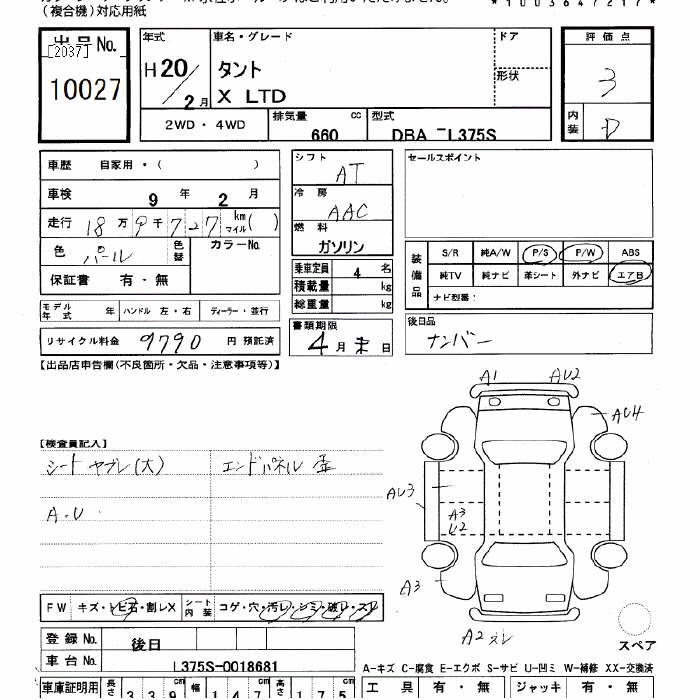 (複合機)対応用紙
*1003647217*
出品No.
[2037]
10027
年式
H20/2月
車名・グレード
タント
X LTD
ドア
形状
2WD・4WD
排気量 cc
660
型式
DBA-L375S
評価点
3
内装
D
車歴 自家用・( )
車検 9年 2月
走行 18万9千727 km マイル( )
色 パール
色替
カラーNo.
保証書 有・無
モデル年式 年
ハンドル 左・右
ディーラー・並行
リサイクル料金 9790 円 預託済
シフト AT
冷房 AAC
燃料 ガソリン
乗車定員 4 名
積載量 kg
総重量 kg
書類期限
4月末日
セールスポイント
装備品
S/R 純A/W P/S P/W ABS
純TV 純ナビ 革シート 外ナビ エアB
ナビ型番:
後日品
ナンバー
【出品店申告欄(不良箇所・欠品・注意事項等)】
【検査員記入】
シート ヤブレ(大)
エンドパネル 歪
A・U
A1
AU2
AU4
AU3
A3
U2
A3
A2スレ
スペア
FW キズ・トビ石・割レX
シート内装 コゲ・穴・汚レ・シミ・破レ・スレ
登録No. 後日
車台No. L375S-0018681
A-キズ C-腐食 E-エクボ S-サビ U-凹ミ W-補修 XX-交換済
車庫証明用 長さ 339 幅 147 高さ 175
工具 有・無 ジャッキ 有・無